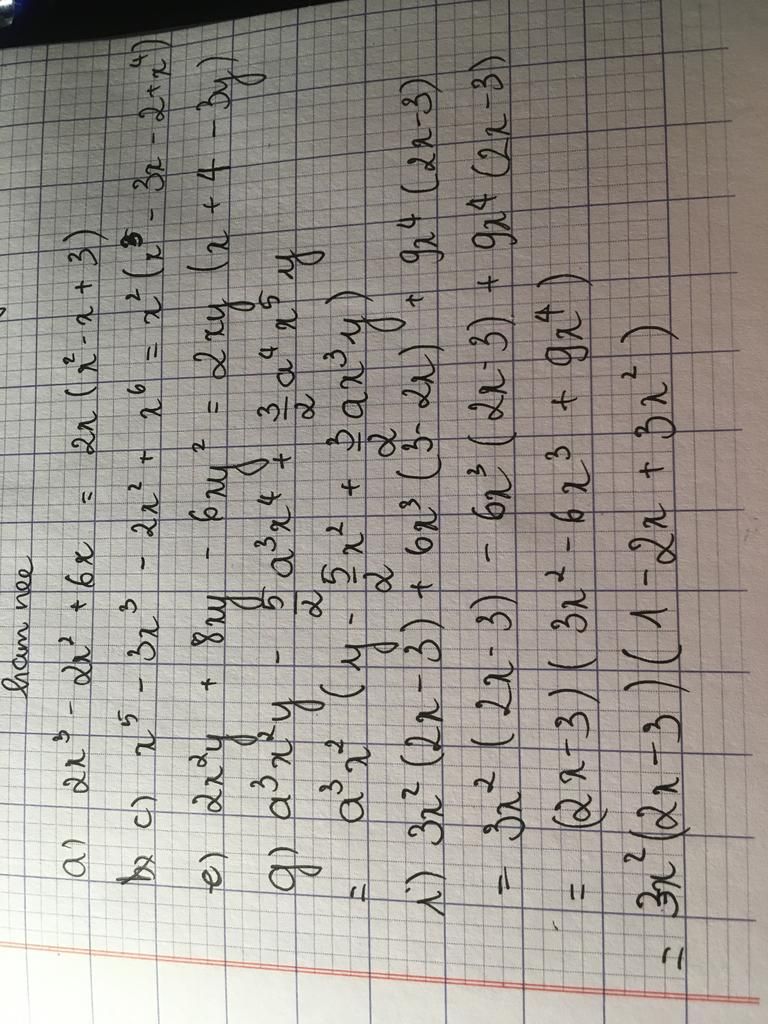 ham nee
a) 2x³ - 2x² + 6x = 2x (x² - x + 3)
c) x⁵ - 3x³ - 2x² + x⁶ = x² (x³ - 3x - 2 + x⁴)
e) 2x²y + 8xy - 6xy² = 2xy (x + 4 - 3y)
g) a³x²y - 5/2 a³x⁴ + 3/2 a⁴x⁵y
= a³x² (y - 5/2 x² + 3/2 ax³y)
i) 3x² (2x - 3) + 6x³ (3 - 2x) + 9x⁴ (2x - 3)
= 3x² (2x - 3) - 6x³ (2x - 3) + 9x⁴ (2x - 3)
= (2x - 3) (3x² - 6x³ + 9x⁴)
= 3x² (2x - 3) (1 - 2x + 3x²)